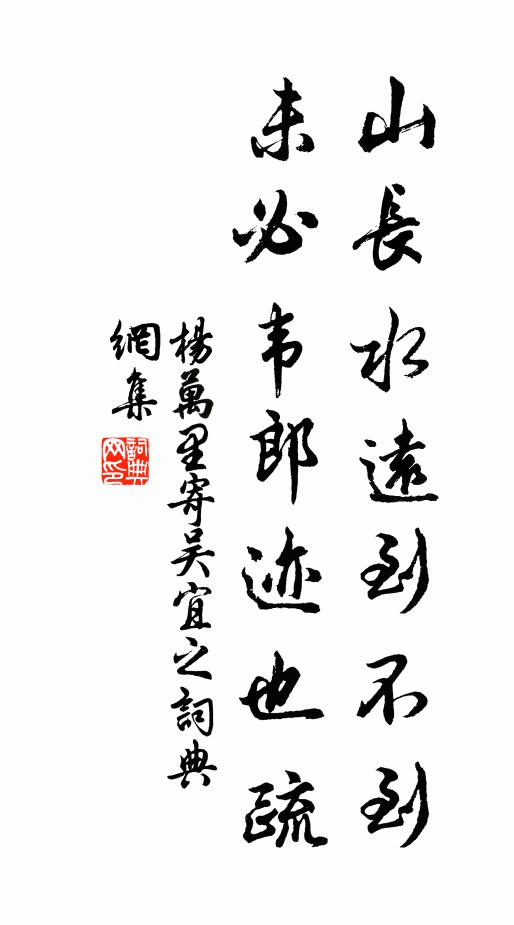 山長水遠到不到
未必韦郎迹也疏
楊萬里寄吴宜之詞典
網集
詞典网印